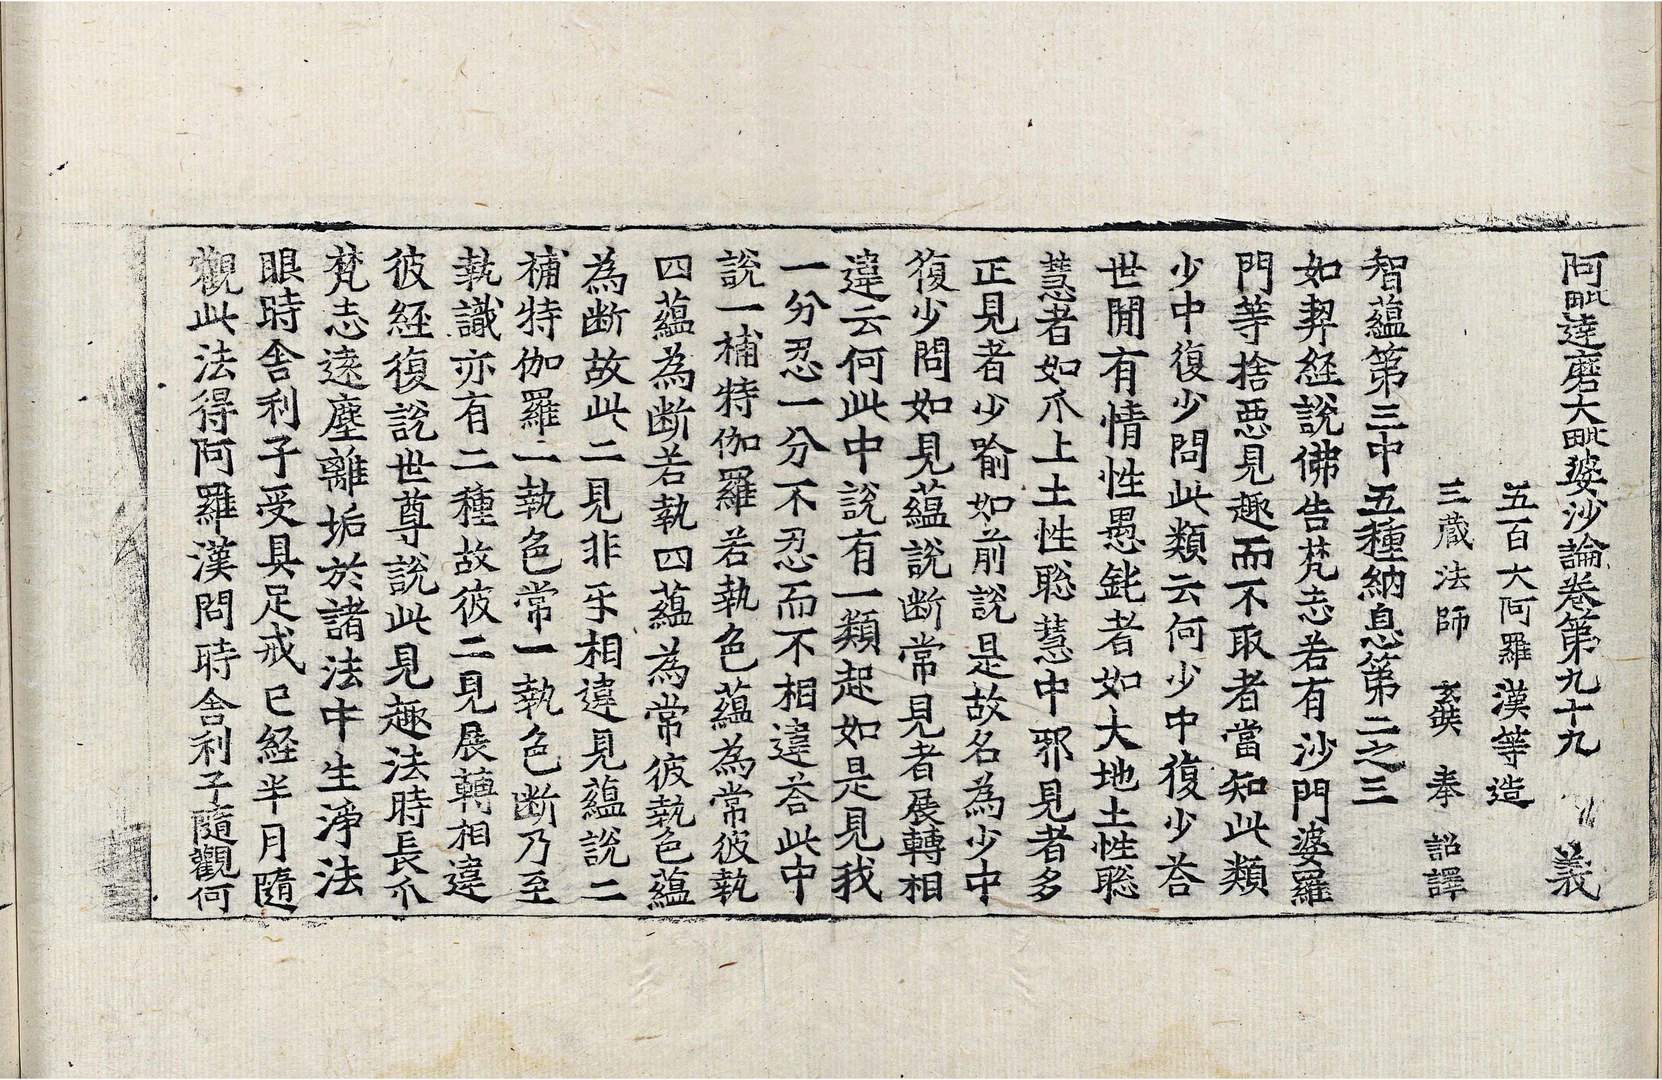 阿毗達磨大毗婆沙論卷第九十九 義
五百大阿羅漢等造
三藏法師 玄奘 奉 詔譯
智蘊第三中五種納息第二之三
如契經說佛告梵志若有沙門婆羅
門等捨惡見趣而不取者當知此類
少中復少問此類云何少中復少荅
世間有情性愚鈍者如大地土性聡
慧者如爪上土性聡慧中邪見者多
正見者少喻如前說是故名為少中
復少問如見蘊說断常見者展轉相
違云何此中說有一類起如是見我
一分忍一分不忍而不相違荅此中
說一補特伽羅若執色蘊為常彼執
四蘊為断若執四蘊為常彼執色蘊
為断故此二見非乐相違見蘊說二
補特伽羅一執色常一執色断乃至
執識亦有二種故彼二見展轉相違
彼經復說世尊說此見趣法時長爪
梵志遠塵離垢於諸法中生淨法
眼時舎利子受具足戒已經半月隨
觀此法得阿羅漢問時舎利子隨觀何